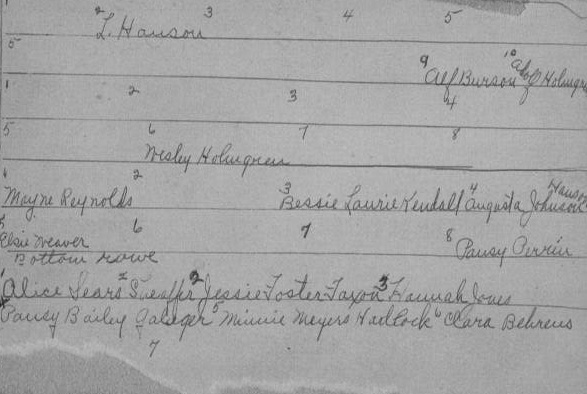 1 2 3 4 5
L. Hanson
5 9 Alf Burson 10 Holmgren
1 2 3 4
5 6 7 8
Wesley Holmgren
1 2 3 4 Hanson
Mayne Reynolds Bessie Laurie Kendall Augusta Johnson
5 6 7 8
Elsie Weaver Pansy Perrin
Bottom rowe
1 Alice Sears 2 Sheaffer 2 Jessie Foster Faxon 3 Hannah Jones
4 Pansy Bailey 5 Minnie Meyers Hadlock 6 Clara Behrens
7